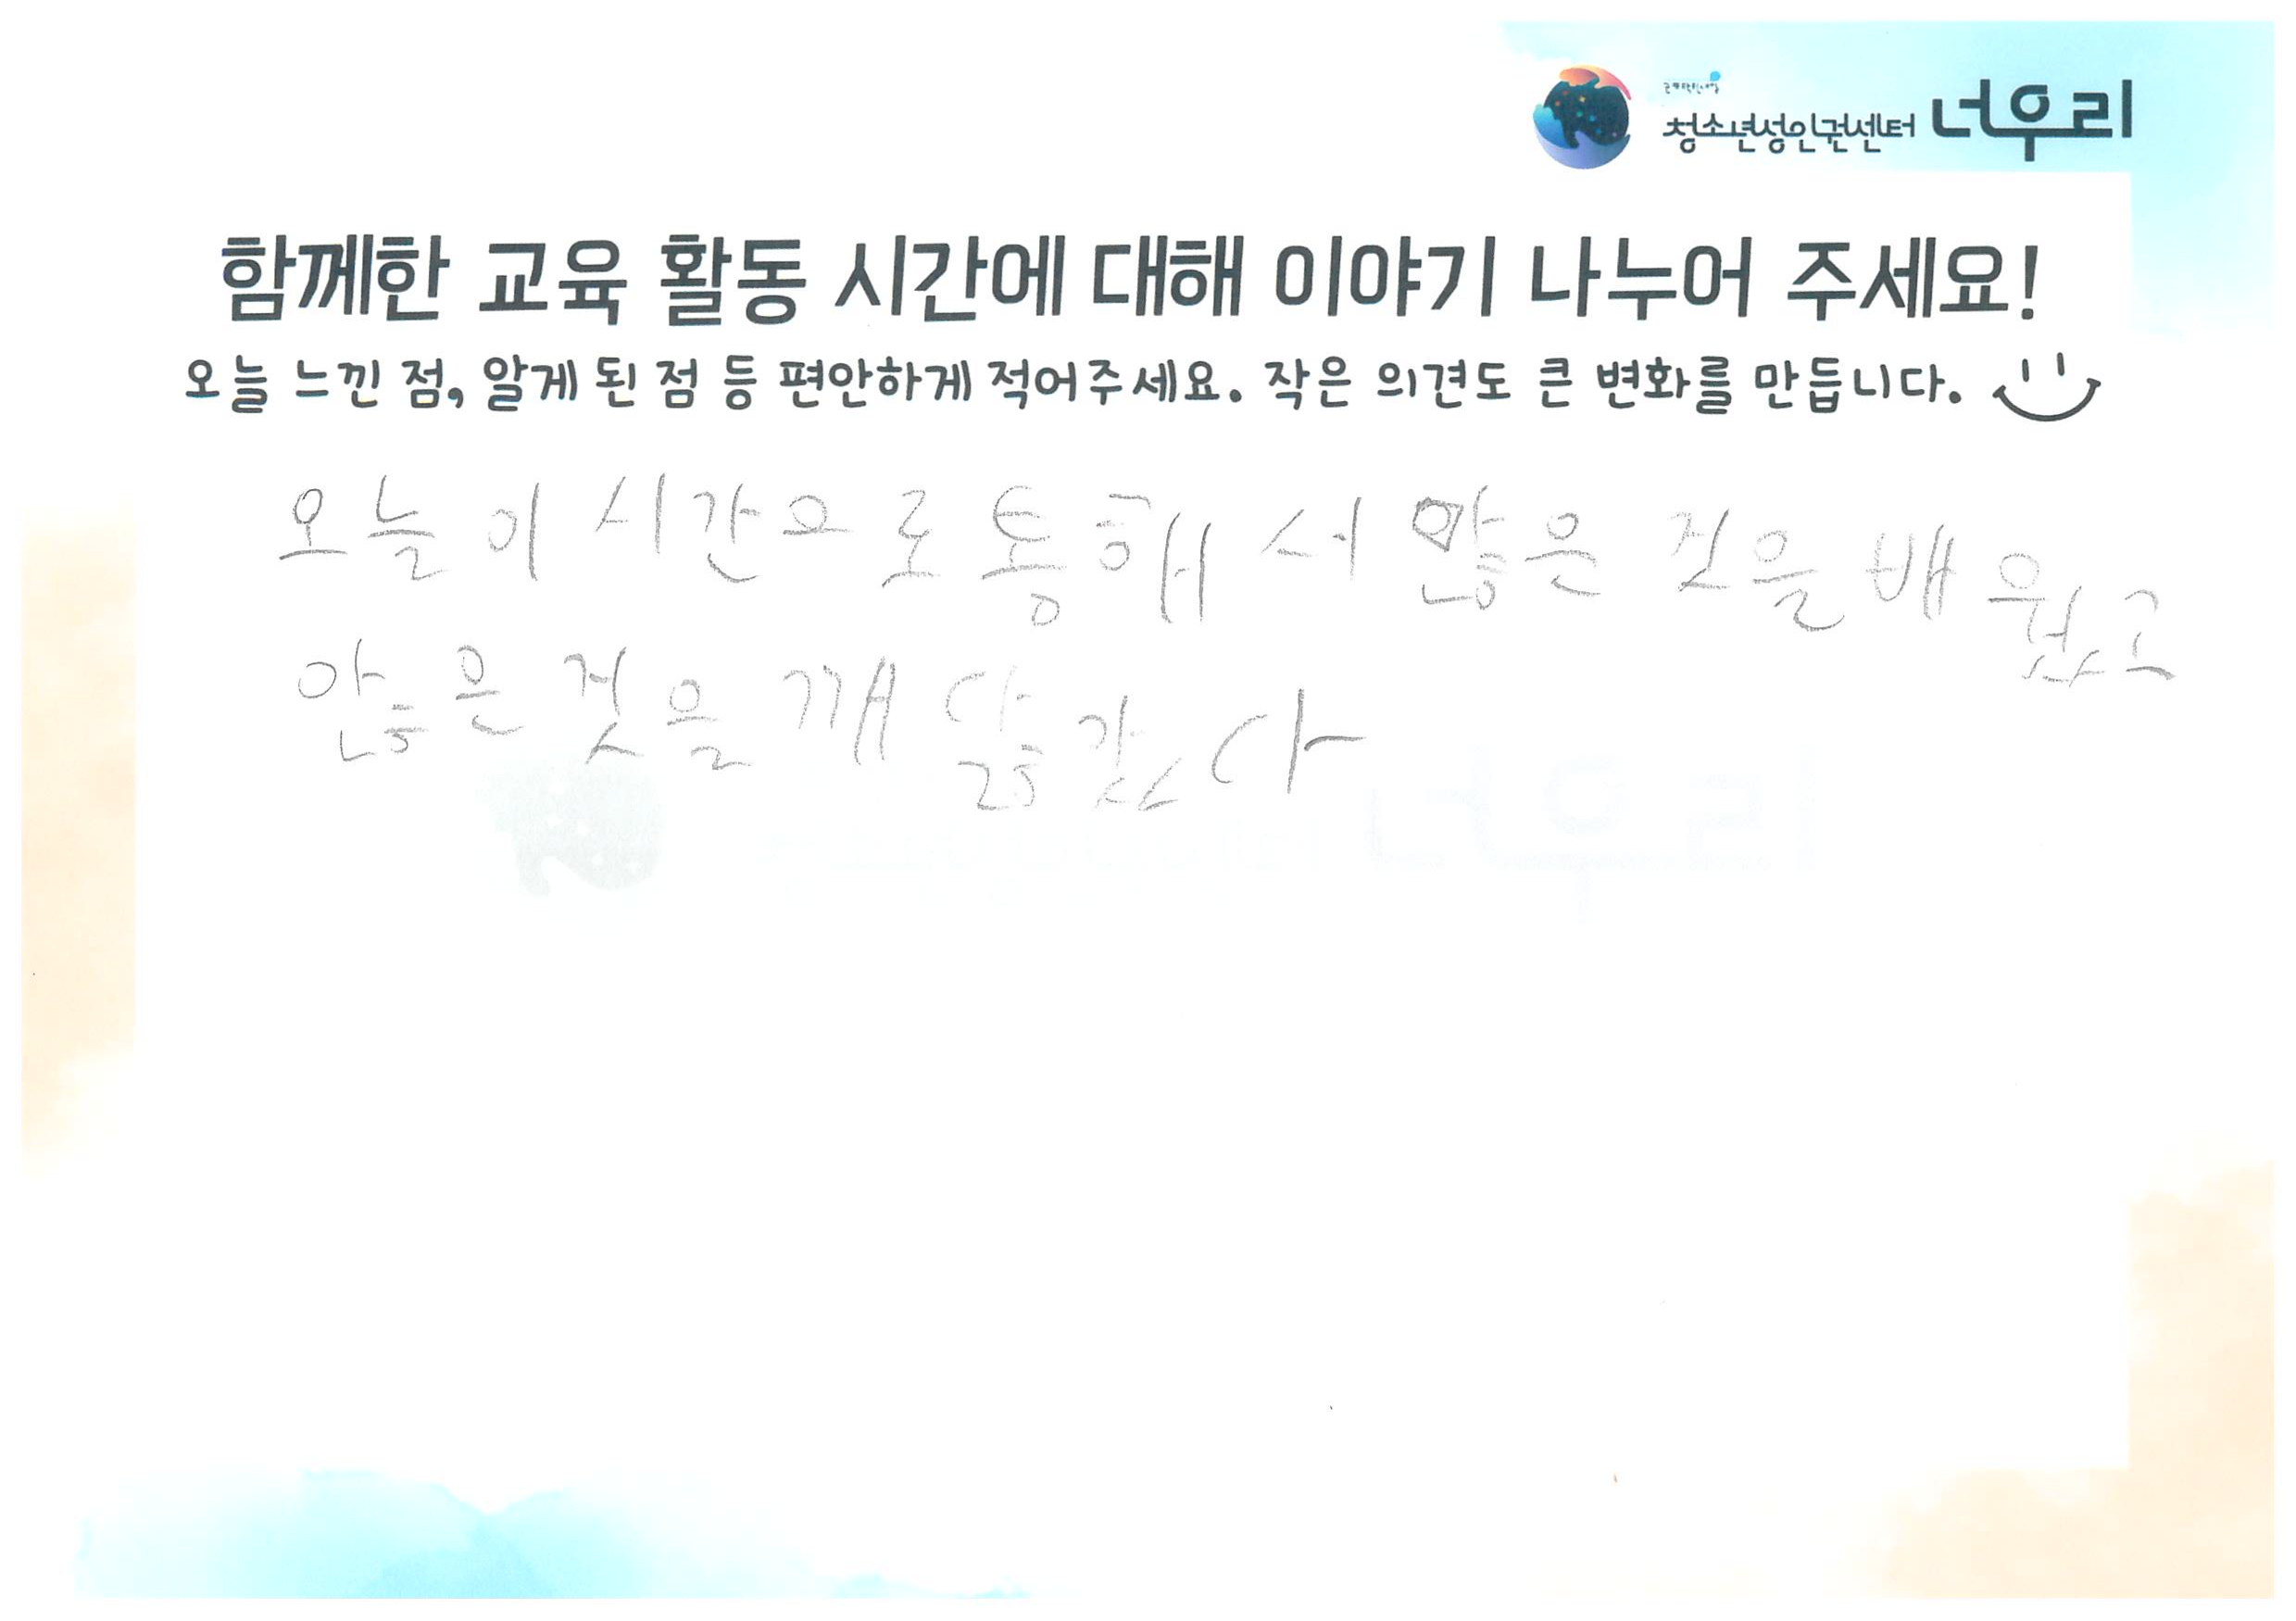 청소년성인권센터 너우리
함께한 교육 활동 시간에 대해 이야기 나누어 주세요!
오늘 느낀 점, 알게 된 점 등 편안하게 적어주세요. 작은 의견도 큰 변화를 만듭니다.
오늘 이 시간으로 통해서 많은 것을 배웠고
않은 것을 깨닳갔다